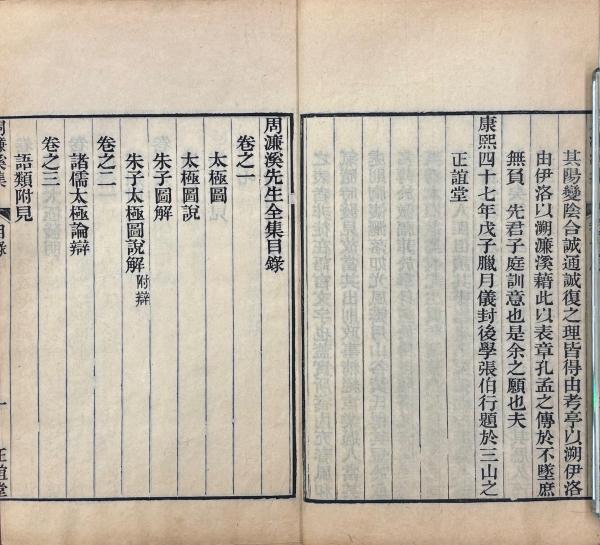 其陽變陰合誠通誠復之理皆得由考亭以溯伊洛
由伊洛以溯濂溪藉此以表章孔孟之傳於不墜庶
無負　先君子庭訓意也是余之願也夫
康熙四十七年戊子臘月儀封後學張伯行題於三山之
正誼堂
周濂溪先生全集目錄
卷之一
太極圖
太極圖說
朱子圖解
朱子太極圖說解附辯
卷之二
諸儒太極論辯
卷之三
語類附見
周濂溪集　目錄　一　正誼堂